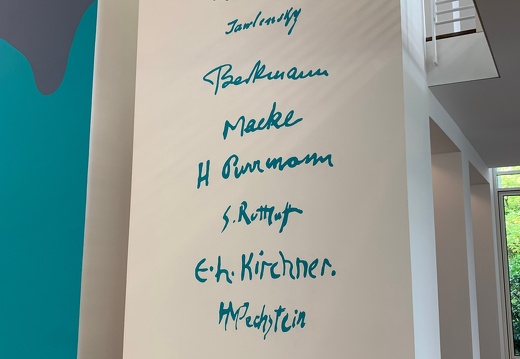 Jawlensky
Beckmann
Macke
H Purrmann
S. Rottluff
E. L. Kirchner.
HMPechstein